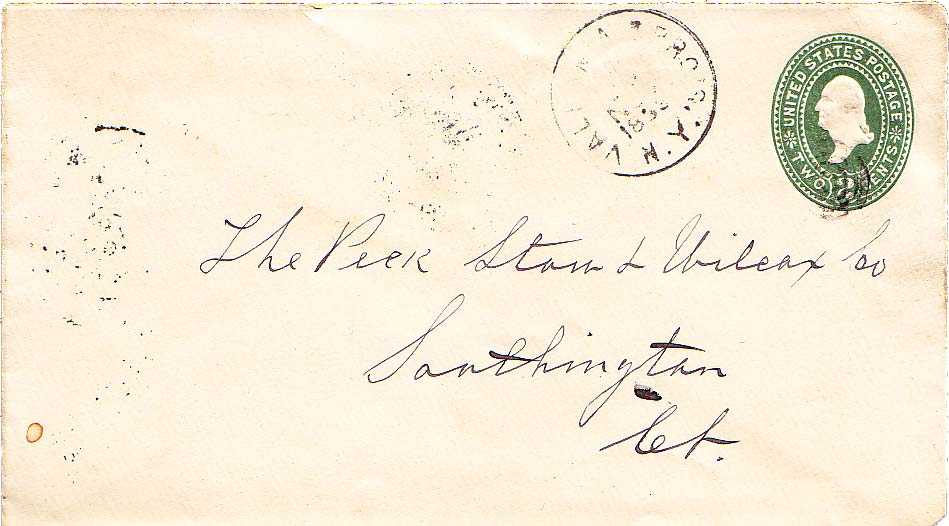 UNITED STATES POSTAGE
TWO 2 CENTS
N.Y.
The Peck Stow & Wilcox Co
Southington
Ct.